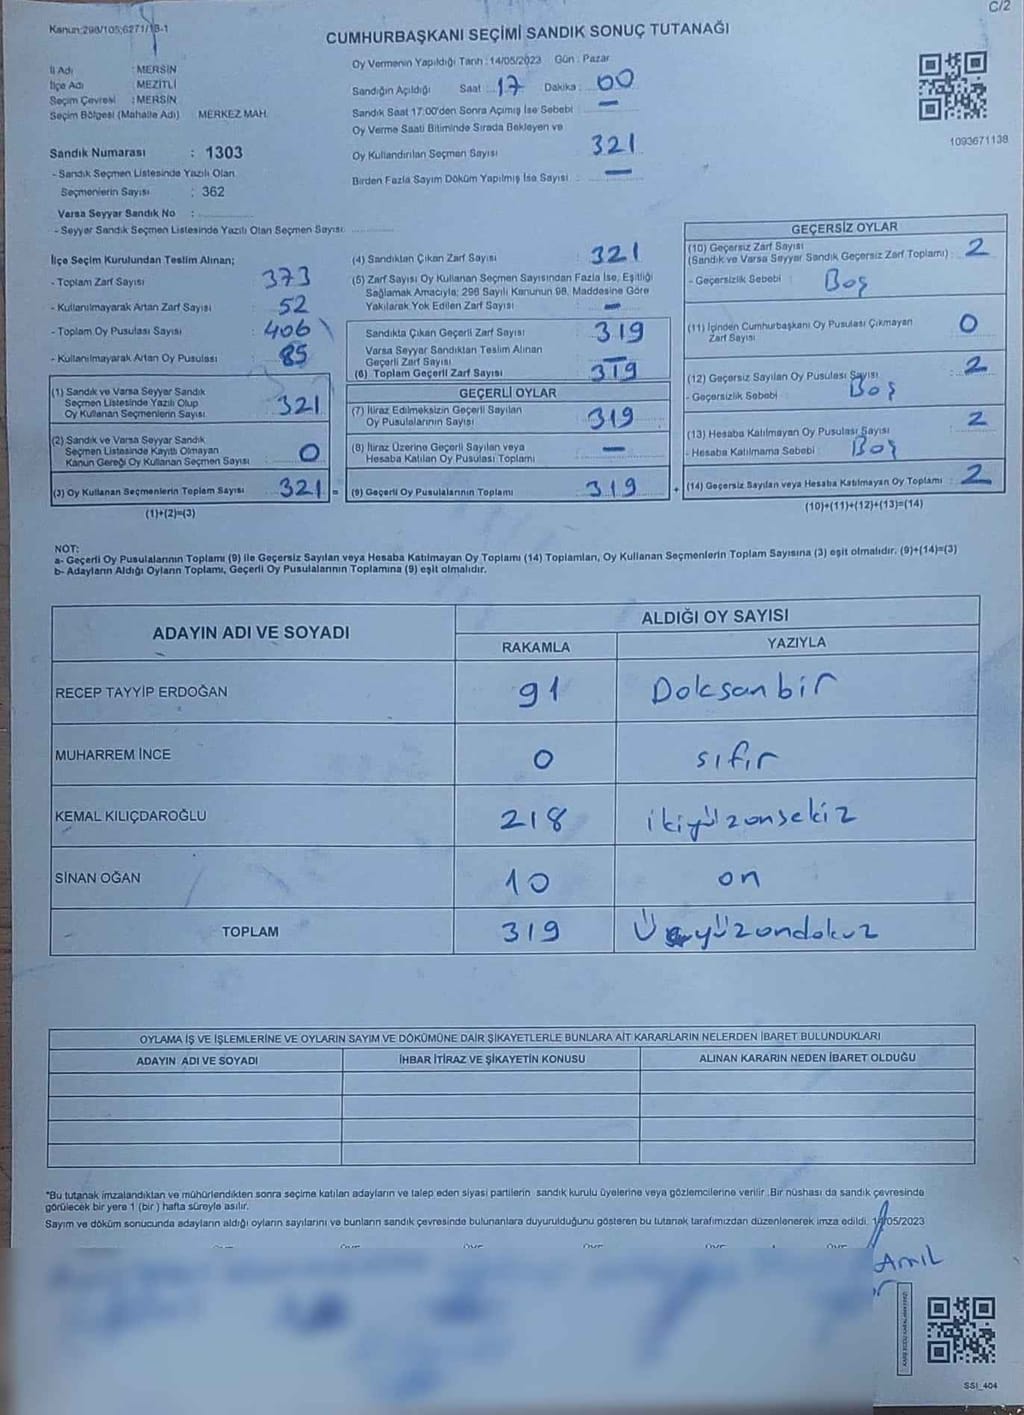 C/2
Kanun:298/105;6271/18-1
CUMHURBAŞKANI SEÇİMİ SANDIK SONUÇ TUTANAĞI
İl Adı : MERSİN
İlçe Adı : MEZİTLİ
Seçim Çevresi : MERSİN
Seçim Bölgesi (Mahalle Adı) MERKEZ MAH.
Sandık Numarası : 1303
- Sandık Seçmen Listesinde Yazılı Olan
Seçmenlerin Sayısı : 362
Varsa Seyyar Sandık No :
- Seyyar Sandık Seçmen Listesinde Yazılı Olan Seçmen Sayısı:
Oy Vermenin Yapıldığı Tarih : 14/05/2023 Gün : Pazar
Sandığın Açıldığı Saat : 17 Dakika : 00
Sandık Saat 17:00'den Sonra Açımış İse Sebebi : —
Oy Verme Saati Bitiminde Sırada Bekleyen ve
Oy Kullandırılan Seçmen Sayısı 321
Birden Fazla Sayım Döküm Yapılmış İse Sayısı : —
1093671138
İlçe Seçim Kurulundan Teslim Alınan;
- Toplam Zarf Sayısı : 373
- Kullanılmayarak Artan Zarf Sayısı : 52
- Toplam Oy Pusulası Sayısı : 406
- Kullanılmayarak Artan Oy Pusulası : 85
(1) Sandık ve Varsa Seyyar Sandık
Seçmen Listesinde Yazılı Olup
Oy Kullanan Seçmenlerin Sayısı : 321
(2) Sandık ve Varsa Seyyar Sandık
Seçmen Listesinde Kayıtlı Olmayan
Kanun Gereği Oy Kullanan Seçmen Sayısı : 0
(3) Oy Kullanan Seçmenlerin Toplam Sayısı : 321 =
(1)+(2)=(3)
(4) Sandıktan Çıkan Zarf Sayısı : 321
(5) Zarf Sayısı Oy Kullanan Seçmen Sayısından Fazla İse, Eşitliği
Sağlamak Amacıyla; 298 Sayılı Kanunun 98. Maddesine Göre
Yakılarak Yok Edilen Zarf Sayısı : —
Sandıkta Çıkan Geçerli Zarf Sayısı : 319
Varsa Seyyar Sandıktan Teslim Alınan
Geçerli Zarf Sayısı : —
(6) Toplam Geçerli Zarf Sayısı : 319
GEÇERLİ OYLAR
(7) İtiraz Edilmeksizin Geçerli Sayılan
Oy Pusulalarının Sayısı : 319
(8) İtiraz Üzerine Geçerli Sayılan veya
Hesaba Katılan Oy Pusulası Toplamı : —
(9) Geçerli Oy Pusulalarının Toplamı : 319 +
GEÇERSİZ OYLAR
(10) Geçersiz Zarf Sayısı
(Sandık ve Varsa Seyyar Sandık Geçersiz Zarf Toplamı) : 2
- Geçersizlik Sebebi : Boş
(11) İçinden Cumhurbaşkanı Oy Pusulası Çıkmayan
Zarf Sayısı : 0
(12) Geçersiz Sayılan Oy Pusulası Sayısı : 2
- Geçersizlik Sebebi : Boş
(13) Hesaba Katılmayan Oy Pusulası Sayısı : 2
- Hesaba Katılmama Sebebi : Boş
(14) Geçersiz Sayılan veya Hesaba Katılmayan Oy Toplamı : 2
(10)+(11)+(12)+(13)=(14)
NOT:
a- Geçerli Oy Pusulalarının Toplamı (9) ile Geçersiz Sayılan veya Hesaba Katılmayan Oy Toplamı (14) Toplamları, Oy Kullanan Seçmenlerin Toplam Sayısına (3) eşit olmalıdır. (9)+(14)=(3)
b- Adayların Aldığı Oyların Toplamı, Geçerli Oy Pusulalarının Toplamına (9) eşit olmalıdır.
ADAYIN ADI VE SOYADI
ALDIĞI OY SAYISI
RAKAMLA YAZIYLA
RECEP TAYYİP ERDOĞAN 91 Doksanbir
MUHARREM İNCE 0 sıfır
KEMAL KILIÇDAROĞLU 218 ikiyüzonsekiz
SİNAN OĞAN 10 on
TOPLAM 319 Üçyüzondokuz
OYLAMA İŞ VE İŞLEMLERİNE VE OYLARIN SAYIM VE DÖKÜMÜNE DAİR ŞİKAYETLERLE BUNLARA AİT KARARLARIN NELERDEN İBARET BULUNDUKLARI
ADAYIN ADI VE SOYADI İHBAR İTİRAZ VE ŞİKAYETİN KONUSU ALINAN KARARIN NEDEN İBARET OLDUĞU
*Bu tutanak imzalandıktan ve mühürlendikten sonra seçime katılan adayların ve talep eden siyasi partilerin sandık kurulu üyelerine veya gözlemcilerine verilir. Bir nüshası da sandık çevresinde
görülecek bir yere 1 (bir) hafta süreyle asılır.
Sayım ve döküm sonucunda adayların aldığı oyların sayılarını ve bunların sandık çevresinde bulunanlara duyurulduğunu gösteren bu tutanak tarafımızdan düzenlenerek imza edildi. 14/05/2023
SSI_404